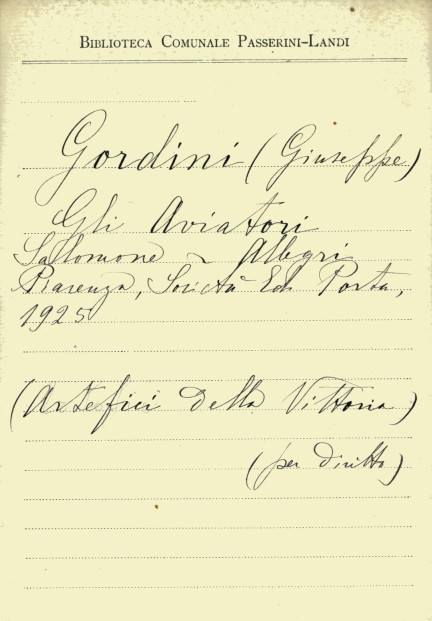 BIBLIOTECA COMUNALE PASSERINI-LANDI
Gordini (Giuseppe)
Gli Aviatori
Salomone ~ Allegri
Piacenza, Società Ed. Porta,
1925
(Artefici della Vittoria)
(per diritto)